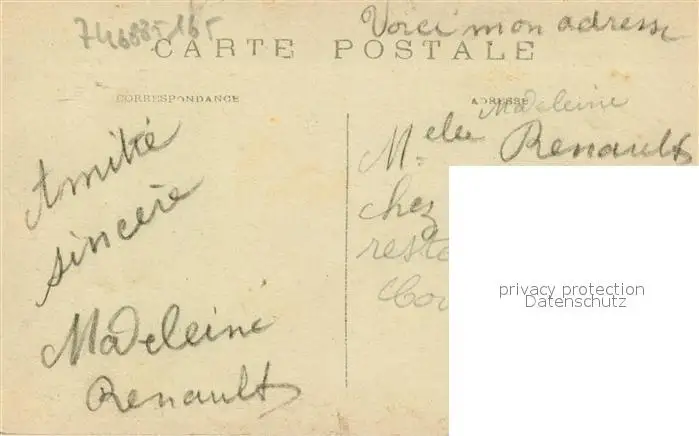 746885 165
Voici mon adresse
CARTE POSTALE
CORRESPONDANCE
ADRESSE
Madeleine
Melle Renault
chez
Amitié
sincère
Madeleine
Renault
privacy protection
Datenschutz